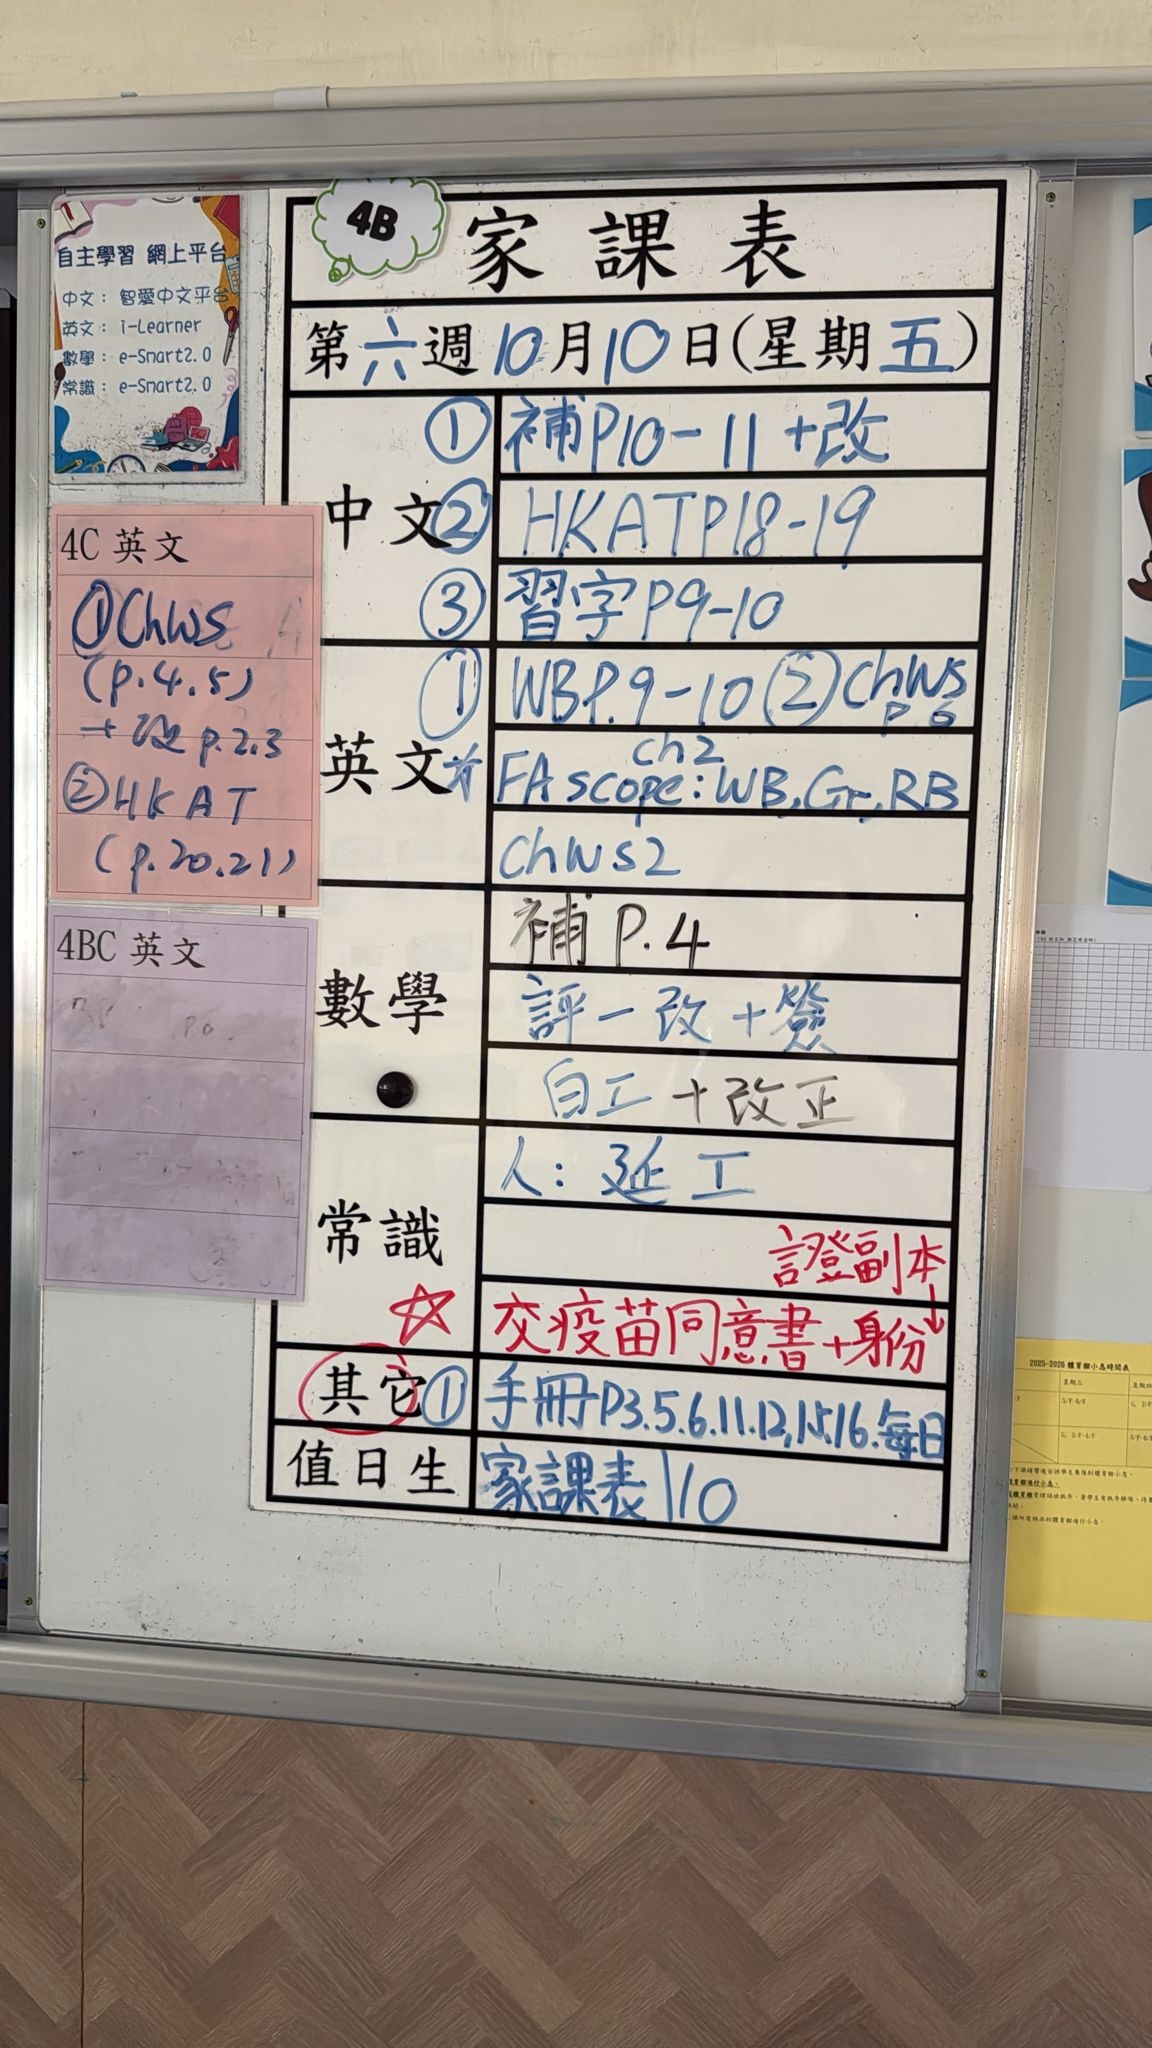 4B
家課表
第六週10月10日(星期五)
自主學習 網上平台
中文： 智愛中文平台
英文： i-Learner
數學： e-Smart2.0
常識： e-Smart2.0
中文
① 補P10-11+改
② HKATP18-19
③ 習字P9-10
英文
① WBP.9-10 ② ChWS
P 6
ch2
FA scope: WB, Gr, RB
ChWS2
數學
補 P.4
評一改+簽
白工+改正
常識
人：延工
証副本
☆ 交疫苗同意書+身份
其它 ① 手冊P3.5.6.11.12,15.16.每日
值日生 家課表 1/10
4C 英文
① ChWS
(p.4.5)
+改 p.2.3
② HKAT
(p.20.21)
4BC 英文
2025-2026 體育館小息時間表
星期三